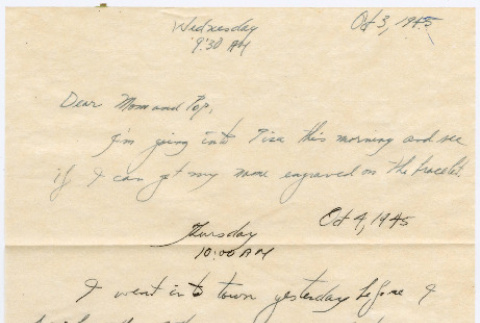 Wednesday Oct 3, 1945
9:30 AM
Dear Mom and Pop,
I'm going into Pisa this morning and see
if I can get my name engraved on the bracelet.
Oct 4, 1945
Thursday
10:00 AM
I went into town yesterday before I